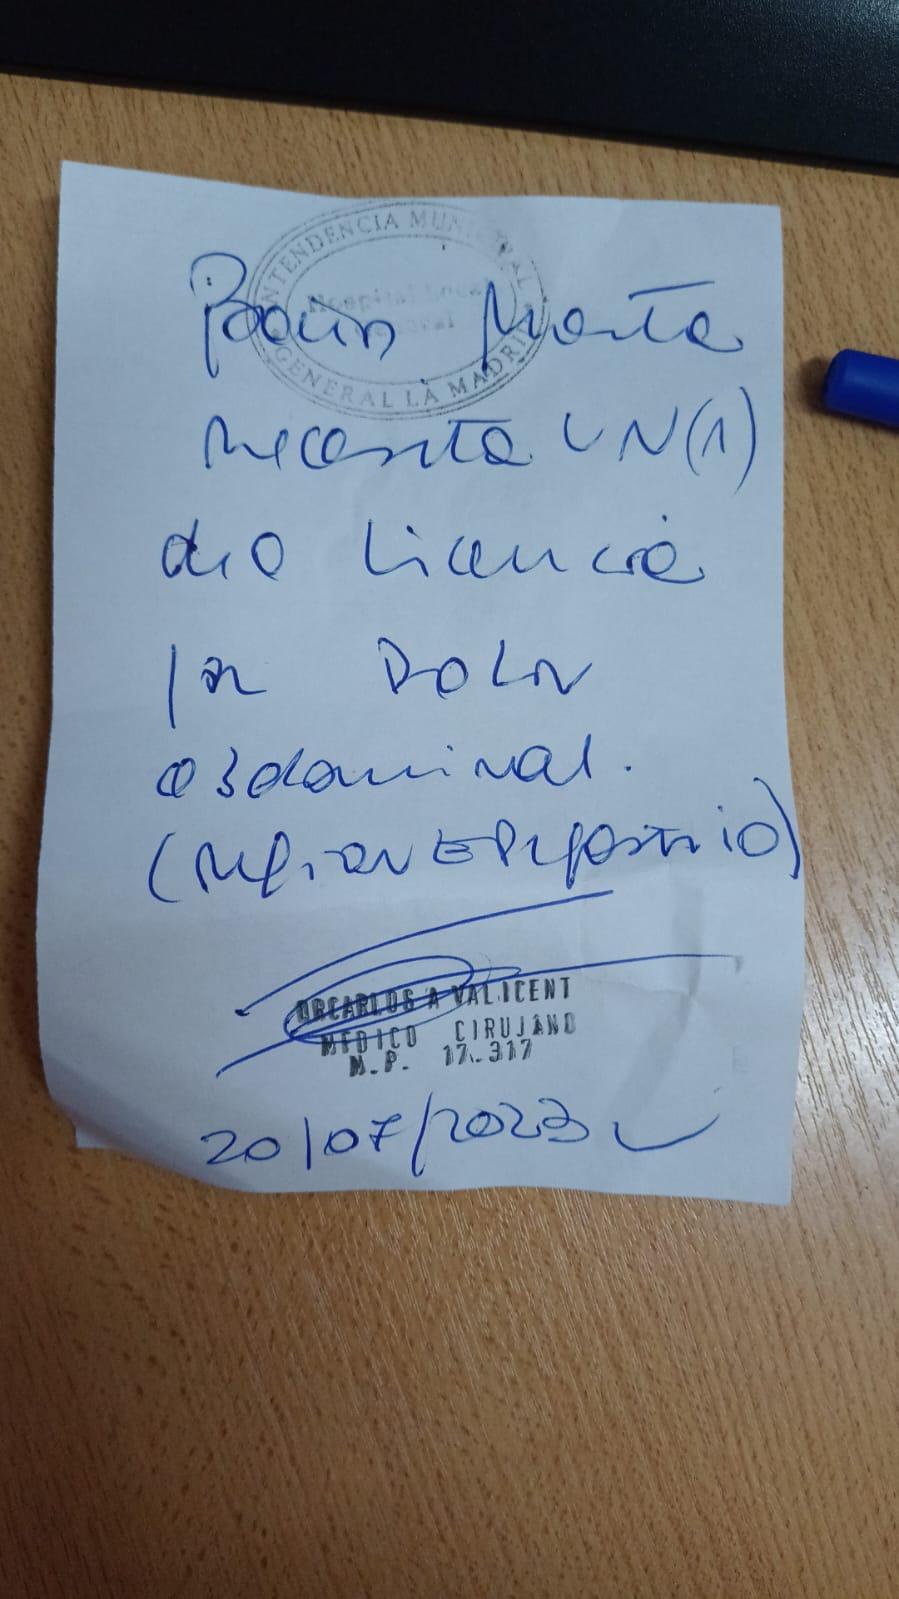 INTENDENCIA MUNICIPAL
Hospital Local
General
GENERAL LA MADRID
Marta
necesita UN (1)
dia licencia
por DOLOR
abdominal.
(REGION EPIGASTRIO)
DR CARLOS A VALICENT
MEDICO CIRUJANO
M.P. 17.317
20/07/2023